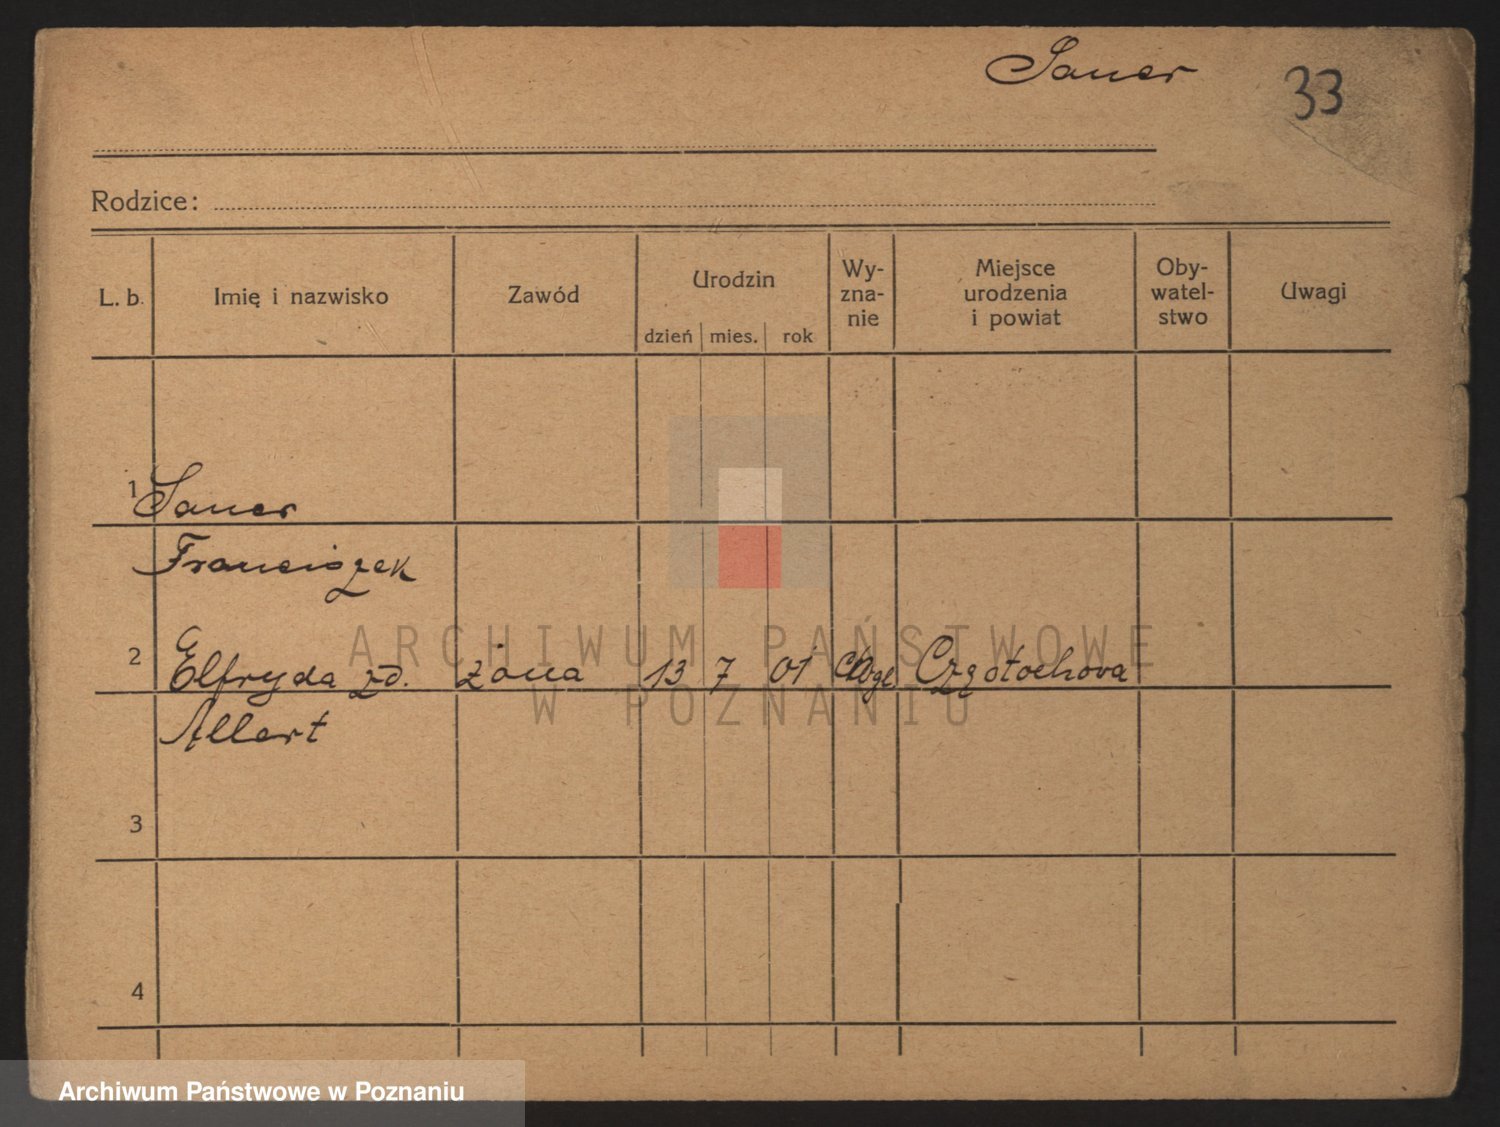 Sauer
33
Rodzice:
L. b. Imię i nazwisko Zawód Urodzin dzień mies. rok Wy-zna-nie Miejsce urodzenia i powiat Oby-watel-stwo Uwagi
1 Sauer
Franciszek
2 Elfryda zd. żona 13 7 01 Częstochova
Allert
3
4
ARCHIWUM PAŃSTWOWE
W POZNANIU
Archiwum Państwowe w Poznaniu